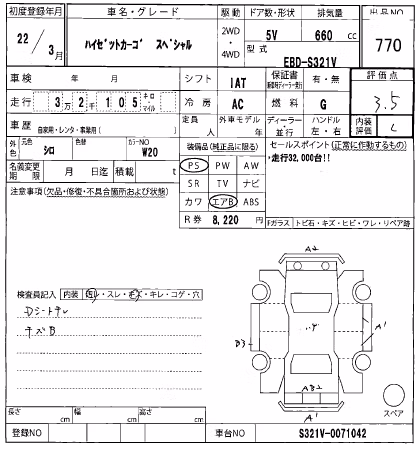 初度登録年月 車名・グレード 駆動 ドア数・形状 排気量 出品NO
22 / 3月 ハイゼットカーゴ スペシャル 2WD・4WD 5V 660 cc 770
型式 EBD-S321V
車検 年 月 シフト IAT 保証書 有・無 評価点
走行 3万2千105 キロ・マイル 冷房 AC 燃料 G 3.5
車歴 自家用・レンタ・事業用( ) 定員 人 外車モデル 年 ディーラー・並行 ハンドル 左・右 内装評価 C
外色 元色 シロ 色替 カラーNO W20 装備品(純正品に限る) セールスポイント(正常に作動するもの)
・走行32,000台!!
名義変更期限 月 日迄 積載 t PS PW AW
注意事項(欠品・修復・不具合箇所および状態) SR TV ナビ
カワ エアB ABS
R券 8,220 円 Fガラス トビ石・キズ・ヒビ・ワレ・リペア跡
A2
検査員記入 内装 ・スレ・キズ・キレ・コゲ・穴
Dシート
キズB
A1
AB2
A1
スペア
長さ cm 幅 cm 高さ cm
登録NO 車台NO S321V-0071042